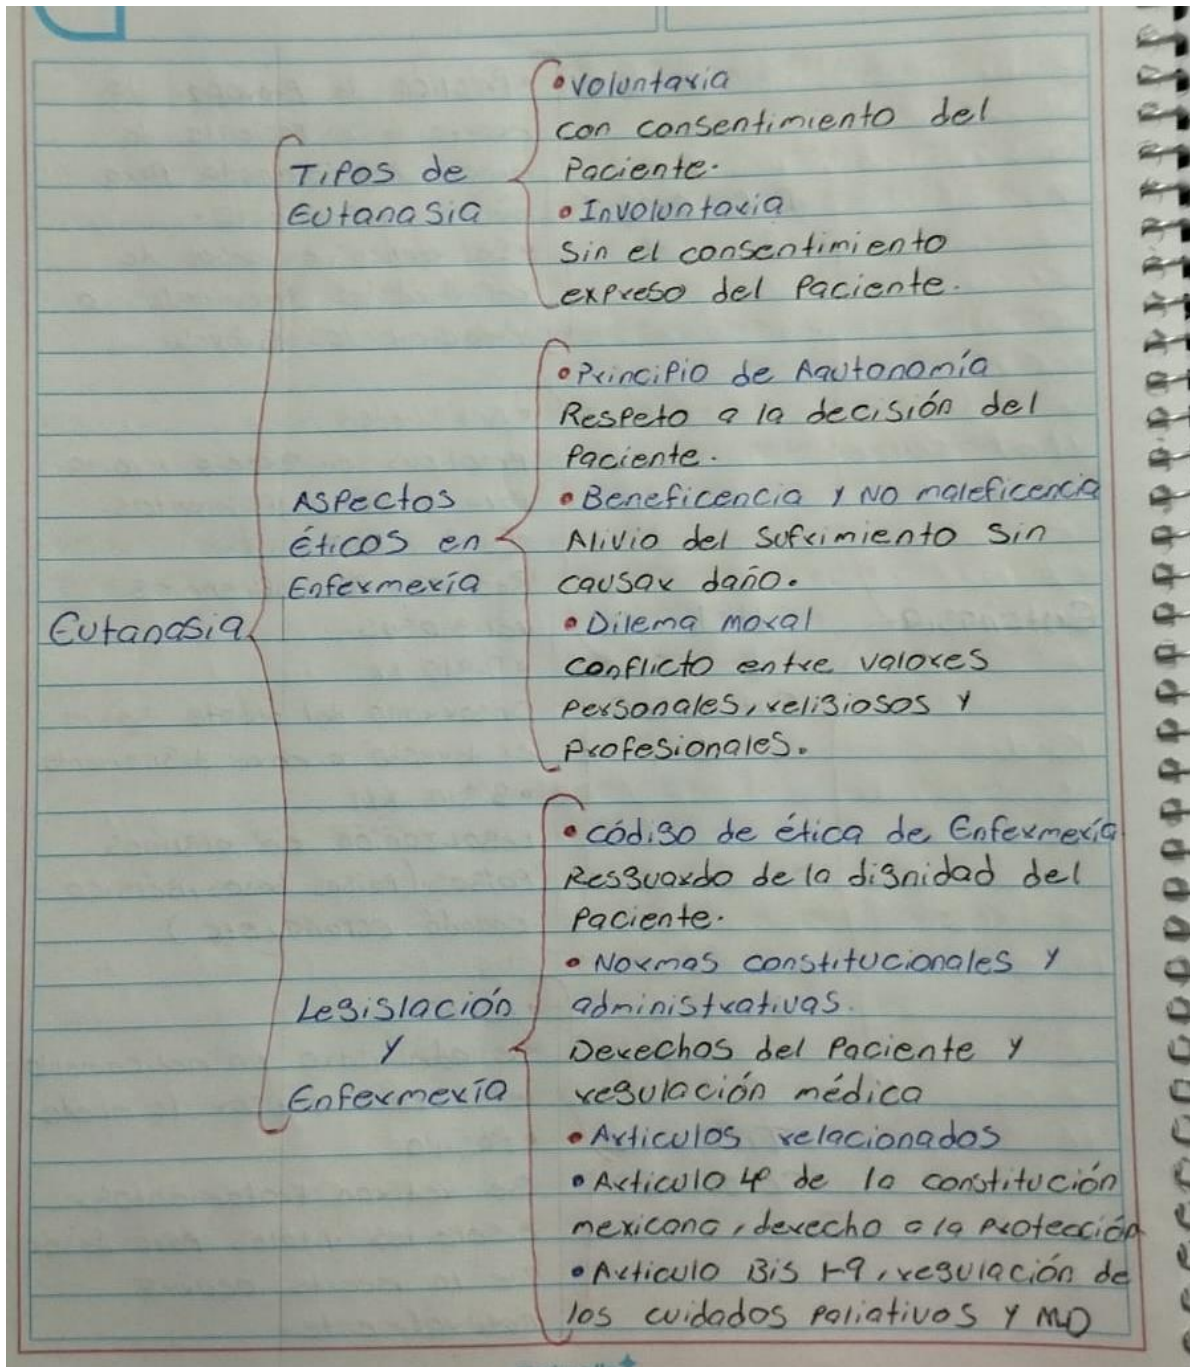 Eutanasia
Tipos de
Eutanasia
• Voluntaria
con consentimiento del
Paciente.
• Involuntaria
Sin el consentimiento
expreso del Paciente.
Aspectos
éticos en
Enfermería
• Principio de Aqutonomía
Respeto a la decisión del
Paciente.
• Beneficencia y No maleficencia
Alivio del Sufrimiento Sin
causar daño.
• Dilema moral
conflicto entre valores
Personales, religiosos y
Profesionales.
Legislación
y
Enfermería
• código de ética de Enfermería
Resguardo de la dignidad del
Paciente.
• Normas constitucionales y
administrativas.
Derechos del Paciente y
regulación médica
• Articulos relacionados
• Articulo 4º de la constitución
mexicana, derecho a la protección
• Articulo Bis 1-9, regulación de
los cuidados Paliativos y MD